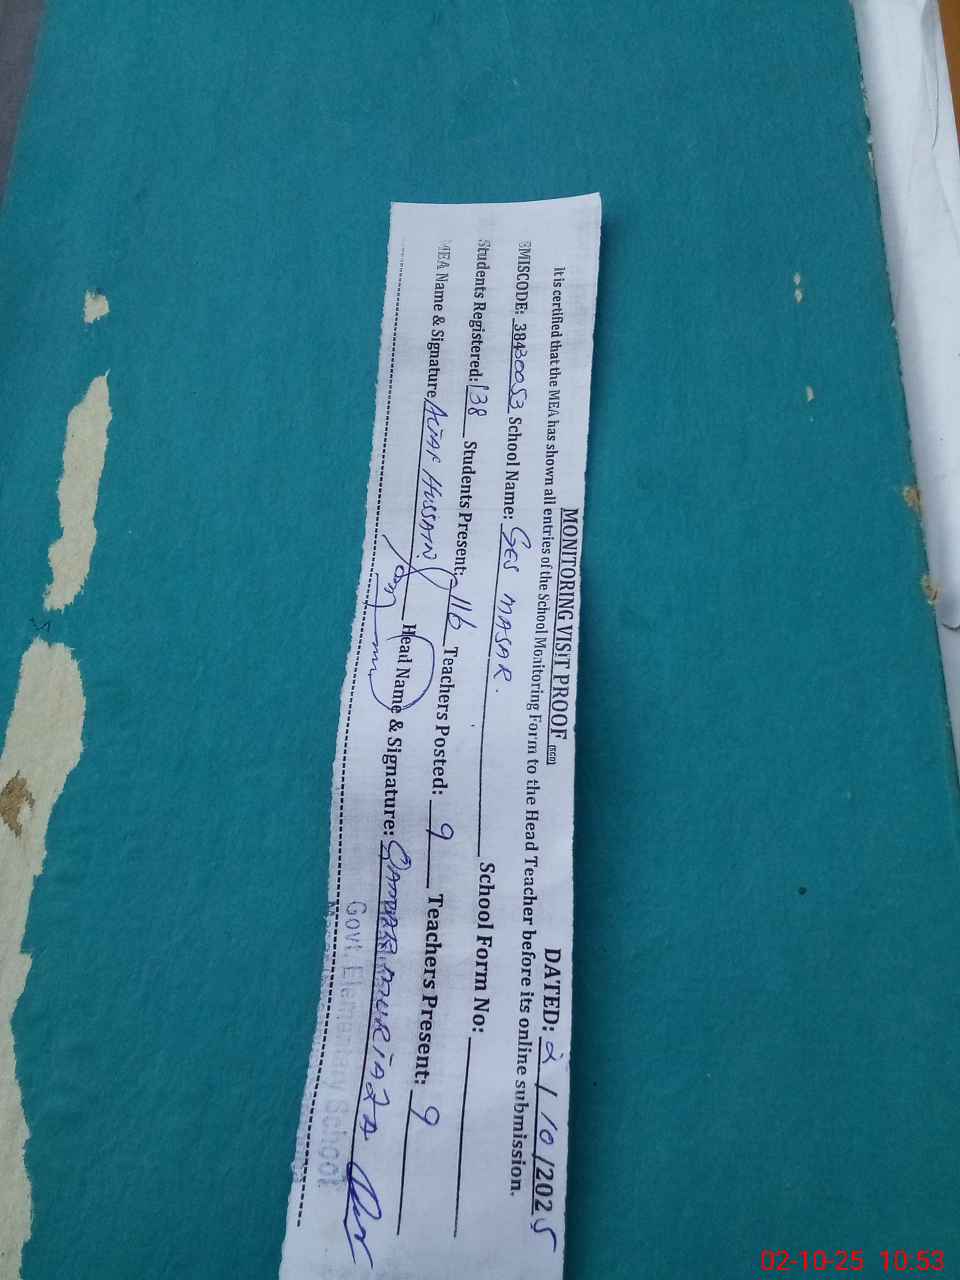 MONITORING VISIT PROOF (SED) DATED: 2 / 10 /2025
it is certified that the MEA has shown all entries of the School Monitoring Form to the Head Teacher before its online submission.
EMISCODE: 38430053 School Name: GES MASAR. School Form No:
Students Registered: 138 Students Present: 116 Teachers Posted: 9 Teachers Present: 9
MEA Name & Signature ALTAF HUSSAIN Head Name & Signature: MURTAZA
Govt. Elementary School
02-10-25 10:53